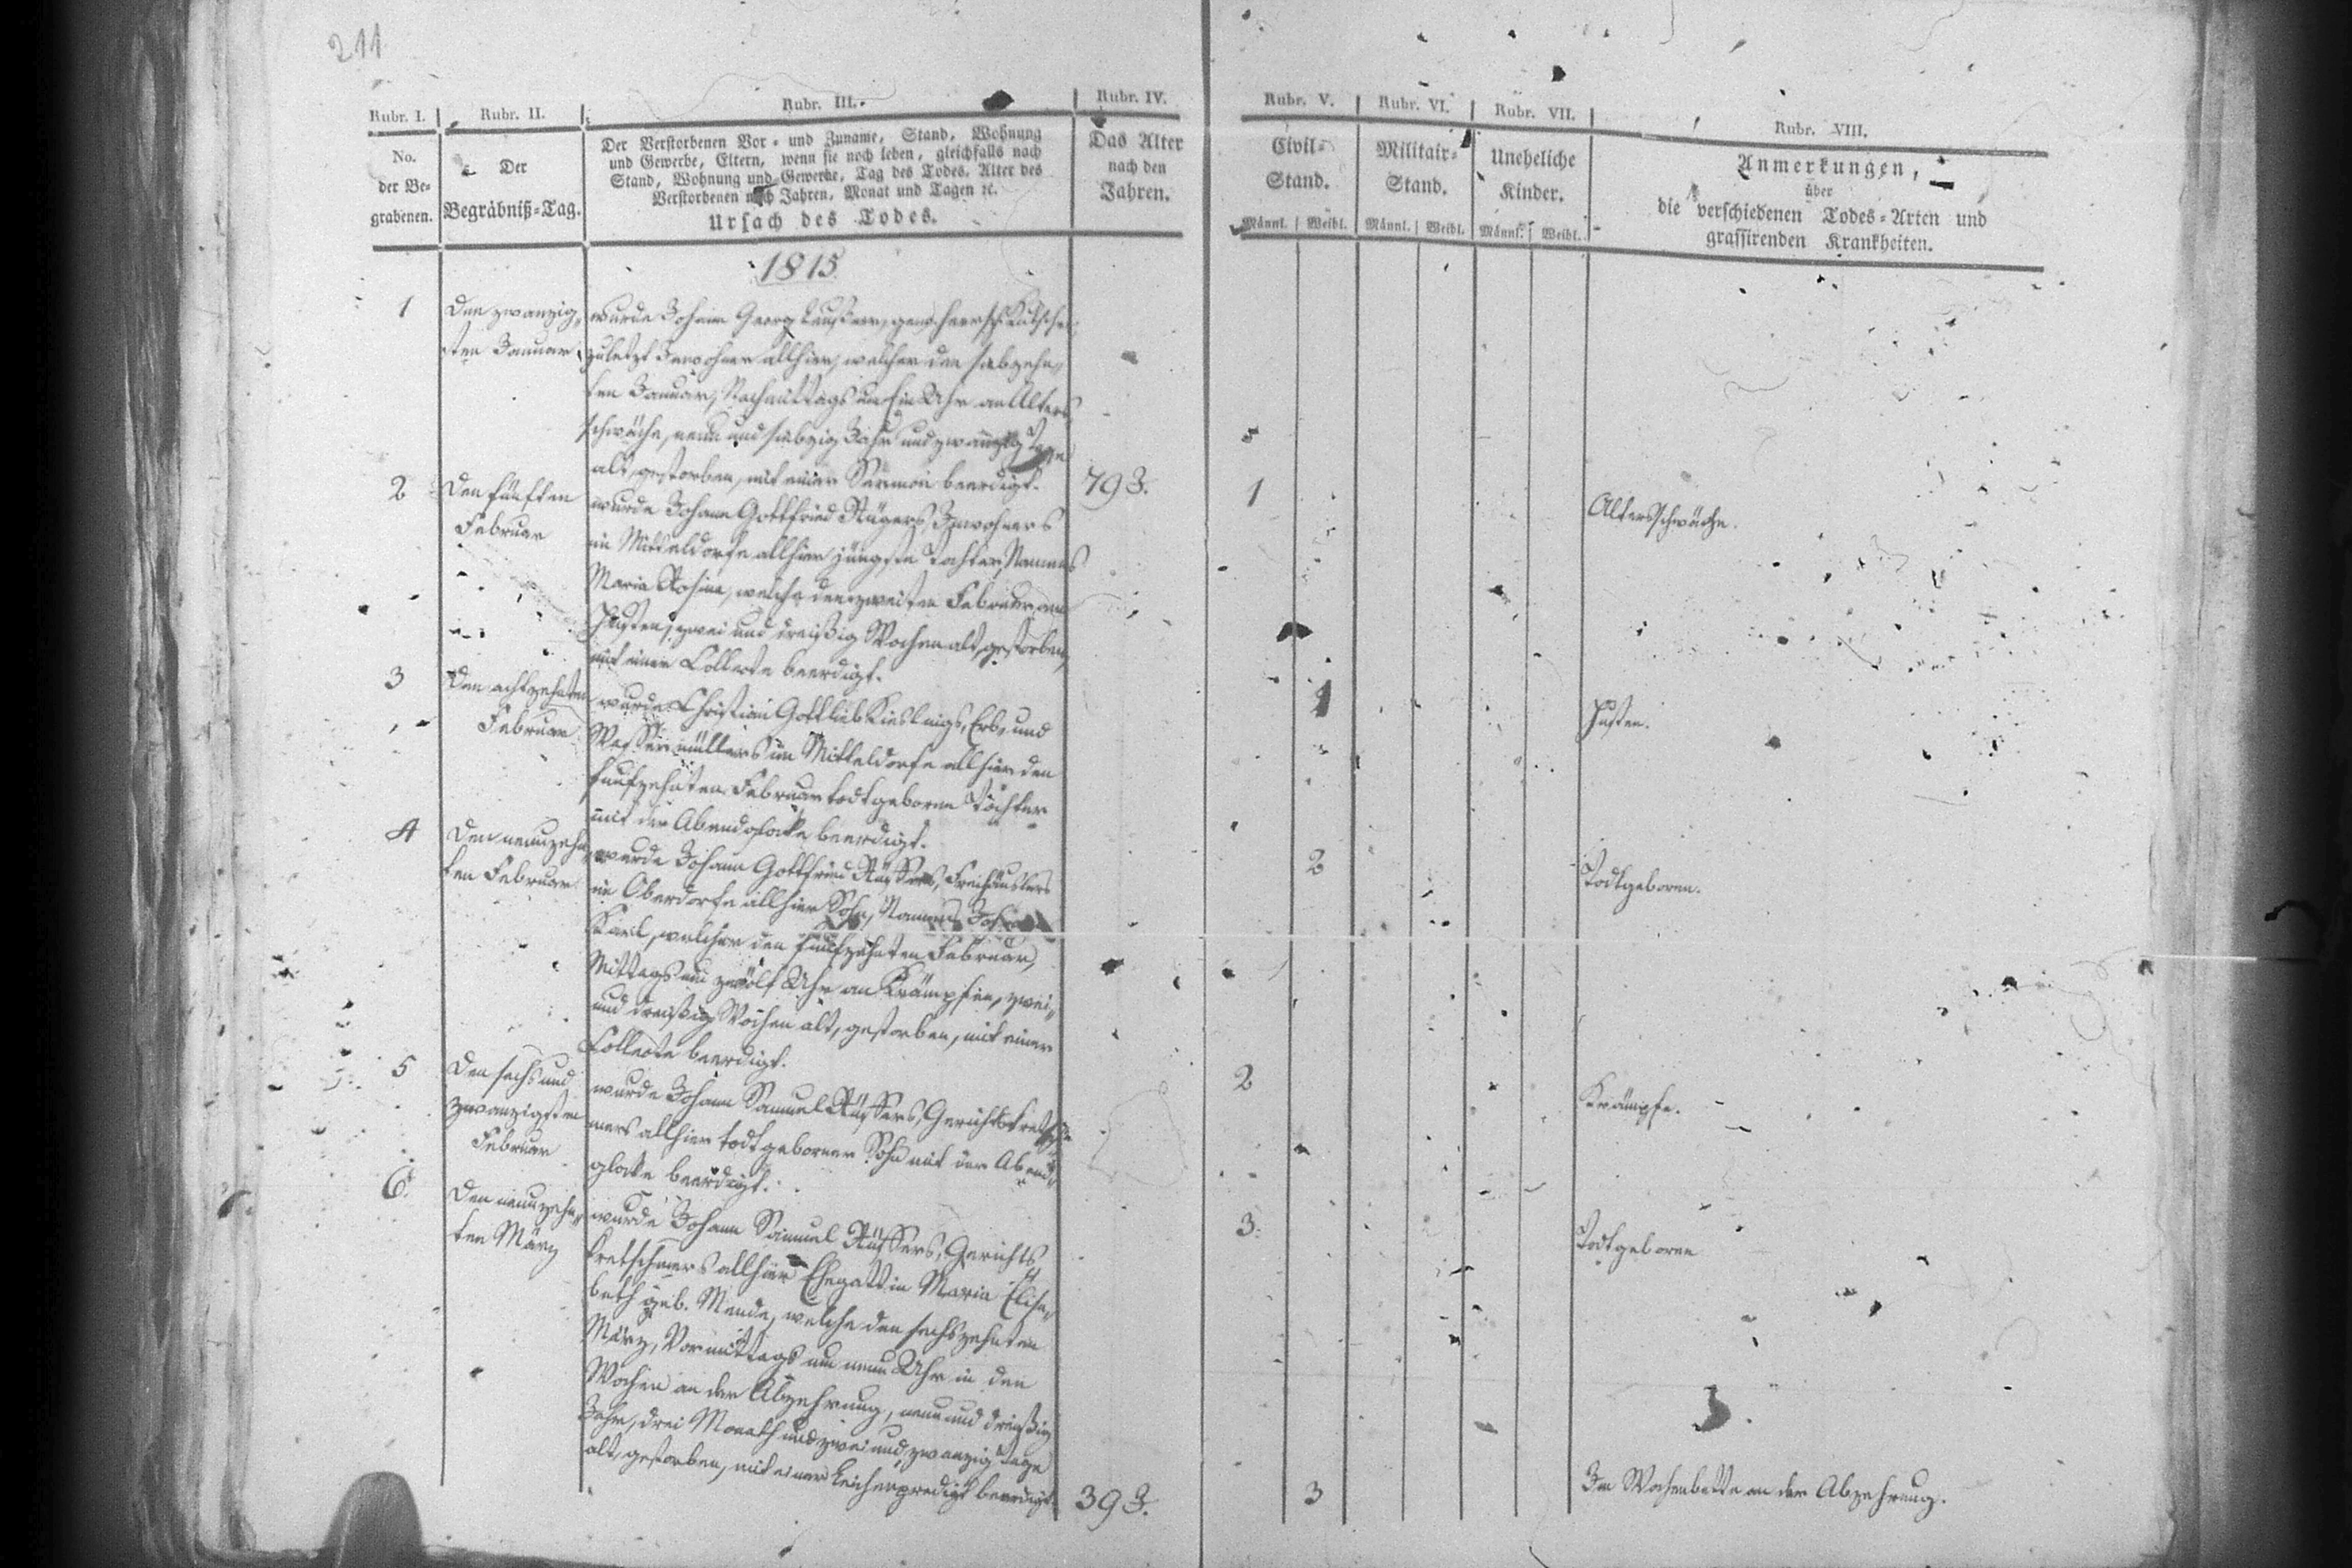 211
Rubr. I.
Rubr. II.
Rubr. III.
Rubr. IV.
Rubr. V.
Rubr. VI.
Rubr. VII.
Rubr. VIII.
No.
der Be-
grabenen.
Der
Begräbniß-Tag.
Der Verstorbenen Vor- und Zuname, Stand, Wohnung
und Gewerbe, Eltern, wenn sie noch leben, gleichfalls nach
Stand, Wohnung und Gewerbe, Tag des Todes, Alter des
Verstorbenen nach Jahren, Monat und Tagen ꝛc.
Ursach des Todes.
Das Alter
nach den
Jahren.
Civil-
Stand.
Männl. Weibl.
Militair-
Stand.
Männl. Weibl.
Uneheliche
Kinder.
Männl. Weibl.
Anmerkungen,
über
die verschiedenen Todes-Arten und
grassirenden Krankheiten.
1815
1
Den zwanzig-
sten Januar
wurde Johann Georg herrsch. Kutscher
zuletzt Inwohner allhier, welcher den siebzehn-
ten Januar, Nachmittags um Ein Uhr an Alters-
schwäche, neun und siebzig Jahr und zwanzig Tage
alt, gestorben, mit einer Sermon beerdigt.
79 J.
1
Altersschwäche.
2
Den fünften
Februar
wurde Johann Gottfried Rügers, Inwohners
im Mitteldorfe allhier jüngste Tochter, Namens
Maria Rosina, welche den zweiten Februar am
Husten, zwei und dreißig Wochen alt, gestorben,
mit einer Collecte beerdigt.
1
Husten.
3
Den achtzehnten
Februar
wurde Christian Gottlieb Kieslings, Erb- und
Wassermüllers im Mitteldorfe allhier den
funfzehnten Februar todtgeborne Tochter
mit der Abendglocke beerdigt.
2
Todtgeboren.
4
Den neunzehn-
ten Februar
wurde Johann Gottfried Rüffers, Freihäuslers
im Oberdorfe allhier Sohn, Namens Johann
Karl, welcher den funfzehnten Februar,
Mittags um zwölf Uhr an Krämpfen, zwei-
und dreißig Wochen alt, gestorben, mit einer
Collecte beerdigt.
2
Krämpfe.
5
Den sechs und
zwanzigsten
Februar
wurde Johann Samuel Rüffers, Gerichtskretsch-
mers allhier todtgeborner Sohn mit der Abend-
glocke beerdigt.
3.
Todtgeboren
6.
Den neunzehn-
ten März
wurde Johann Samuel Rüffers, Gerichts
kretschmers allhier Ehegattin Maria Elisa-
beth geb. Mende, welche den sechszehnten
März, Vormittags um neun Uhr in den
Wochen an der Abzehrung, neun und dreißig
Jahr, drei Monath und zwei und zwanzig Tage
alt, gestorben, mit einer Leichenpredigt beerdigt.
39 J.
3
Im Wochenbette an der Abzehrung.